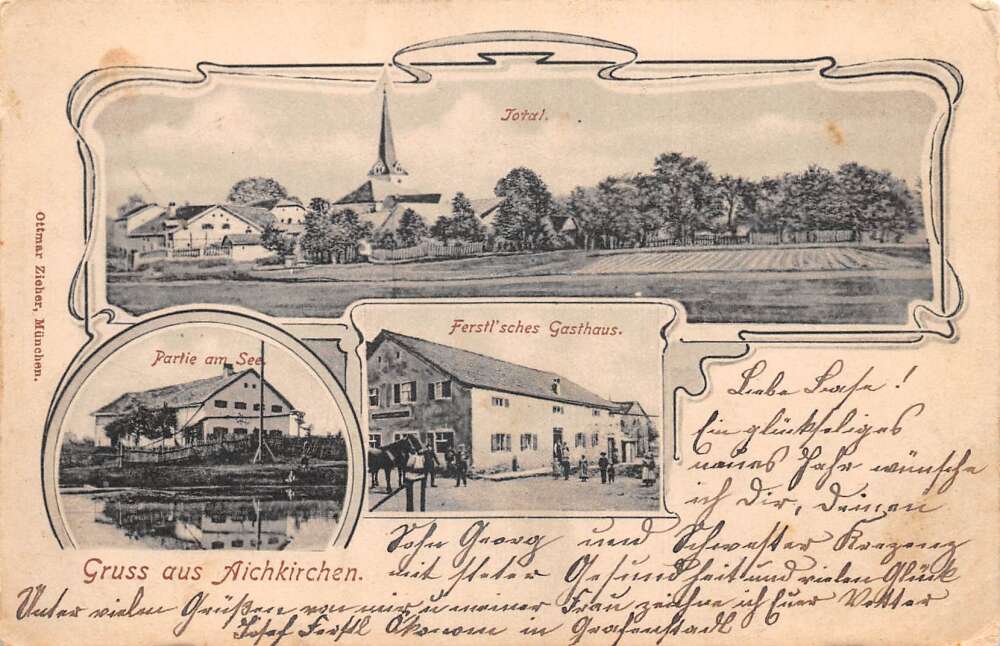 Total.
Ottmar Zieher, München.
Partie am See.
Ferstl'sches Gasthaus.
Gruss aus Aichkirchen.
Liebe Base!
Ein glückseliges
neues Jahr wünsche
ich Dir, Deinen
Sohn Georg und Schwester
mit steter Gesundheit und vielen Glück
Unter vielen Grüßen von mir u meiner Frau zeichne ich Euer Vetter
Josef Ferstl Ökonom in